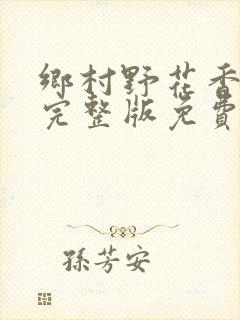 鄉村野花香
完整版免費
孫芳安